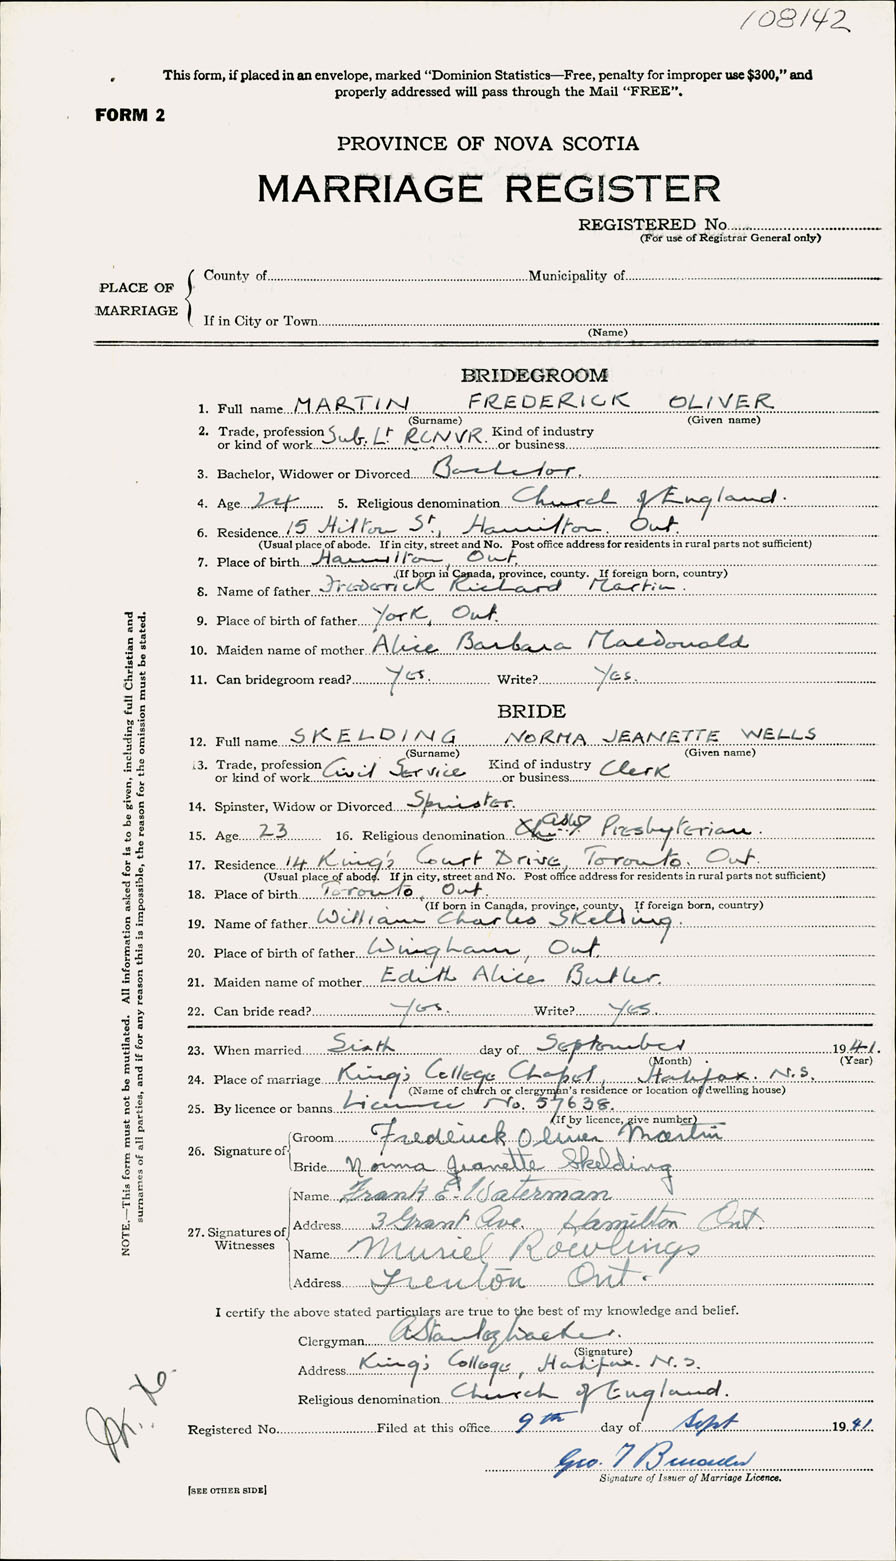 108142
This form, if placed in an envelope, marked "Dominion Statistics—Free, penalty for improper use $300," and
properly addressed will pass through the Mail "FREE".
FORM 2
PROVINCE OF NOVA SCOTIA
MARRIAGE REGISTER
REGISTERED No.
(For use of Registrar General only)
PLACE OF MARRIAGE
County of Municipality of
If in City or Town
(Name)
BRIDEGROOM
1. Full name MARTIN FREDERICK OLIVER
(Surname) (Given name)
2. Trade, profession or kind of work Sub. Lt RCNVR. Kind of industry or business
3. Bachelor, Widower or Divorced Bachelor.
4. Age 24 5. Religious denomination Church of England.
6. Residence 15 Hilton St., Hamilton. Ont.
(Usual place of abode. If in city, street and No. Post office address for residents in rural parts not sufficient)
7. Place of birth Hamilton, Ont.
(If born in Canada, province, county. If foreign born, country)
8. Name of father Frederick Richard Martin.
9. Place of birth of father York, Ont.
10. Maiden name of mother Alice Barbara Macdonald
11. Can bridegroom read? Yes. Write? Yes.
BRIDE
12. Full name SKELDING NORMA JEANETTE WELLS
(Surname) (Given name)
13. Trade, profession or kind of work Civil Service Kind of industry or business Clerk
14. Spinster, Widow or Divorced Spinster.
15. Age 23 16. Religious denomination Presbyterian.
17. Residence 14 King's Court Drive, Toronto. Ont.
(Usual place of abode. If in city, street and No. Post office address for residents in rural parts not sufficient)
18. Place of birth Toronto, Ont.
(If born in Canada, province, county. If foreign born, country)
19. Name of father William Charles Skelding.
20. Place of birth of father Wingham, Ont.
21. Maiden name of mother Edith Alice Butler.
22. Can bride read? Yes. Write? Yes
23. When married Sixth day of September 1941.
(Month) (Year)
24. Place of marriage King's College Chapel, Halifax. N.S.
(Name of church or clergyman's residence or location of dwelling house)
25. By licence or banns Licence No. 57638.
(If by licence, give number)
26. Signature of
Groom Frederick Oliver Martin
Bride Norma Jeanette Skelding
27. Signatures of Witnesses
Name Frank E. Waterman
Address 3 Grant Ave. Hamilton Ont.
Name Muriel Rowlings
Address Trenton Ont.
I certify the above stated particulars are true to the best of my knowledge and belief.
Clergyman
(Signature)
Address King's College, Halifax. N.S.
Religious denomination Church of England.
Registered No. Filed at this office 9th day of Sept 1941
Geo. T
Signature of Issuer of Marriage Licence.
[SEE OTHER SIDE]
NOTE.—This form must not be mutilated. All information asked for is to be given, including full Christian and
surnames of all parties, and if for any reason this is impossible, the reason for the omission must be stated.